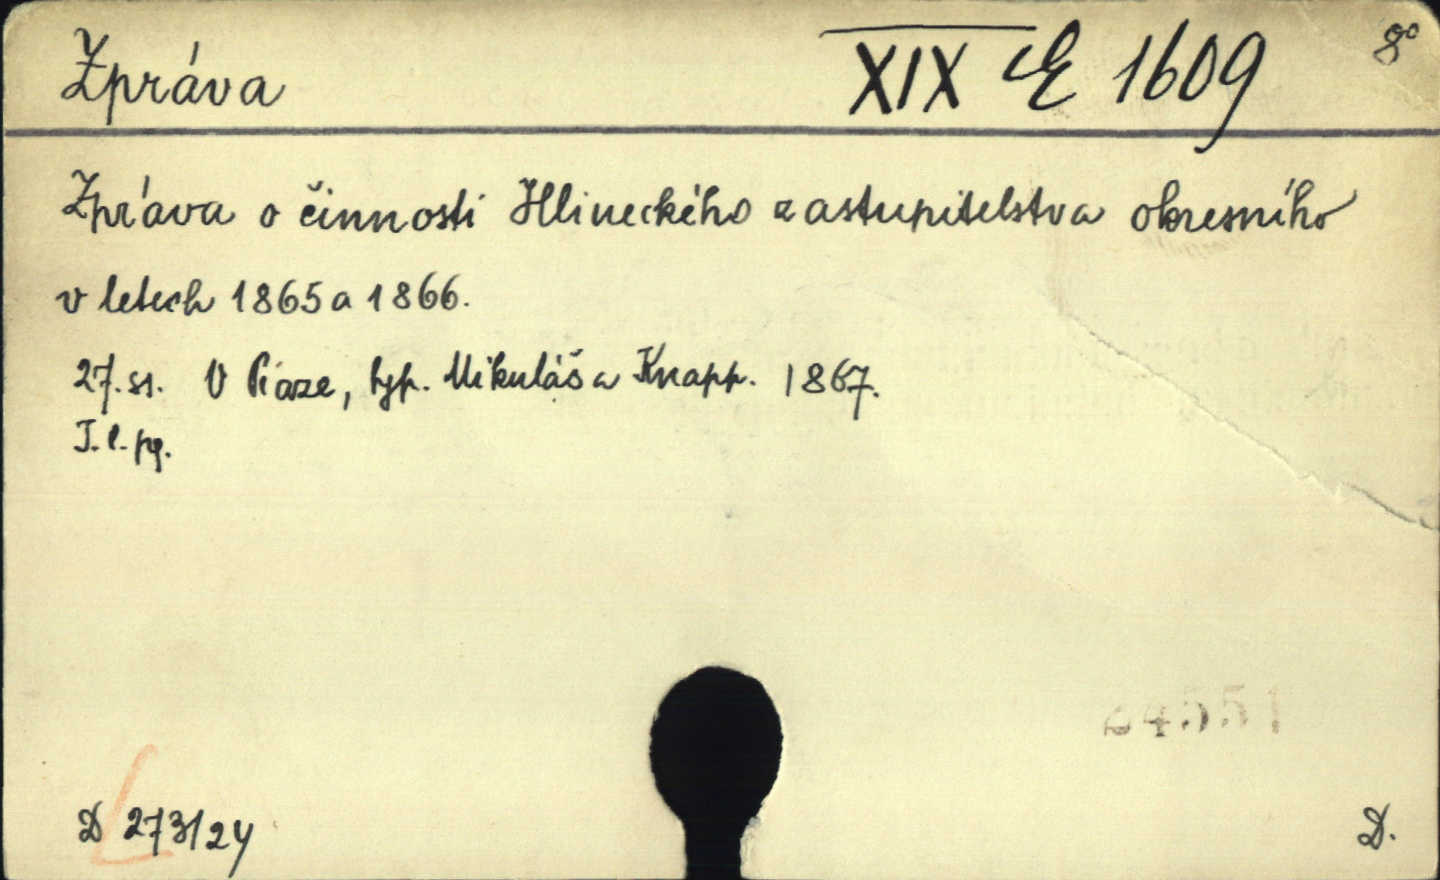 Zpráva XIX E 1609 8°
Zpráva o činnosti Hlineckého zastupitelstva okresního
v letech 1865 a 1866.
27. st. V Praze, typ. Mikuláš a Knapp. 1867.
T. l. pg.
24551
D 273/24 D.